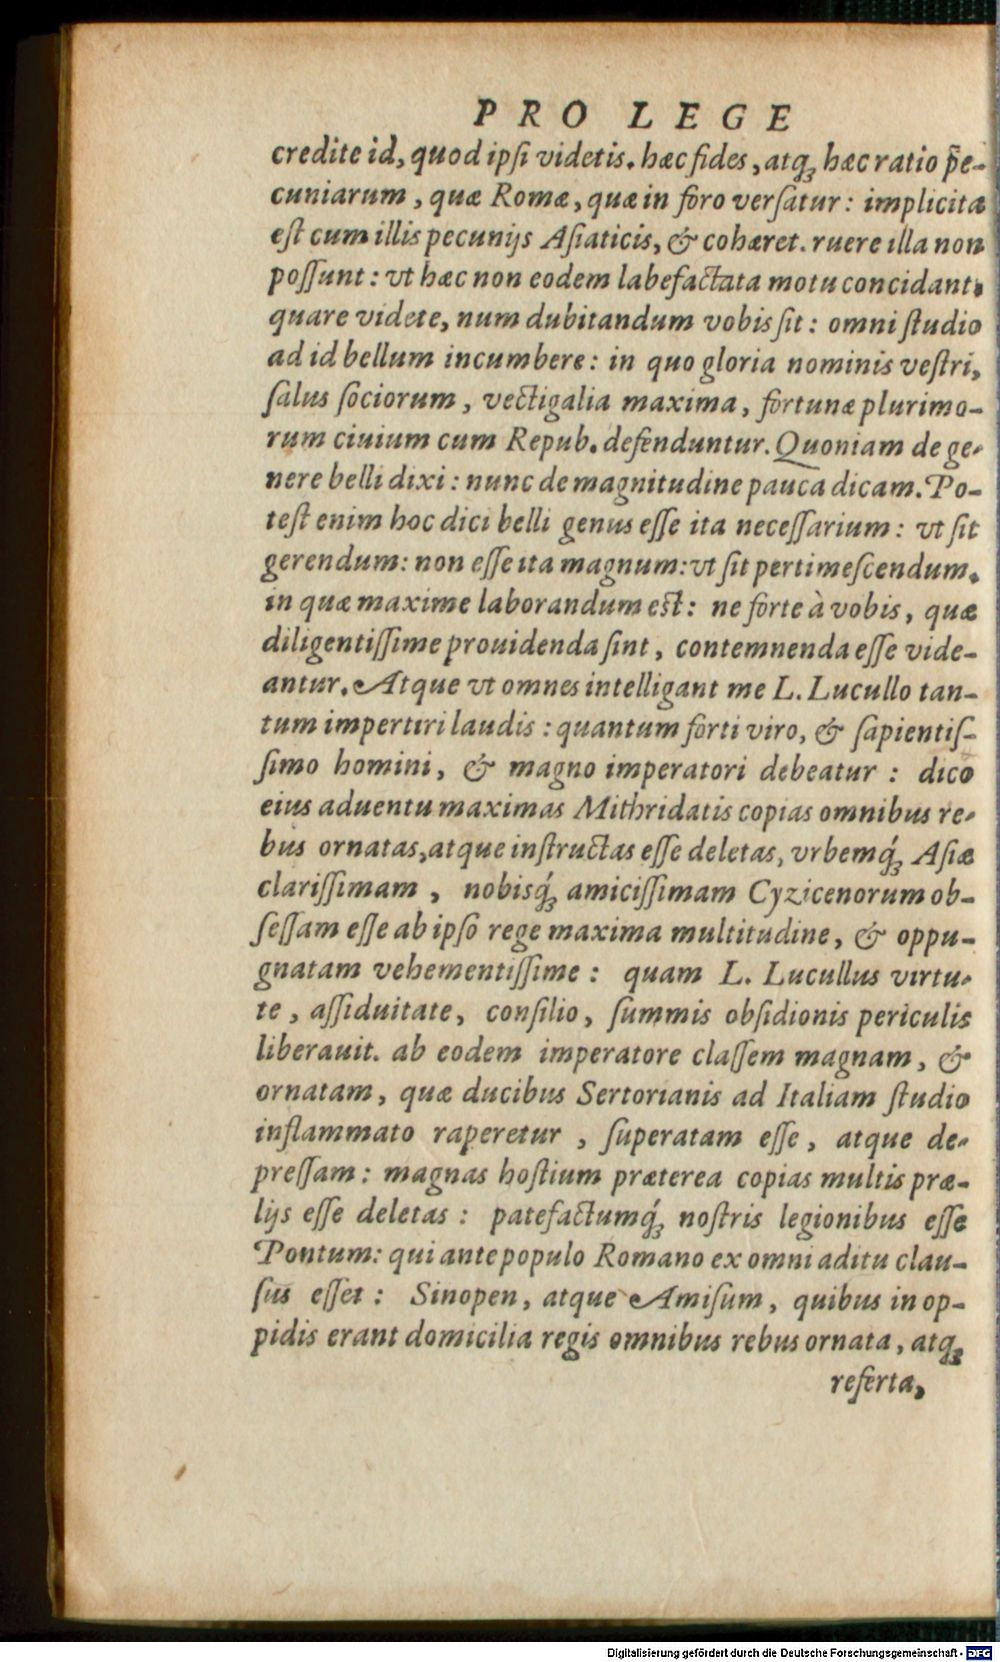 PRO LEGE
credite id, quod ipſi videtis. hæc fides, atqꝫ hæc ratio p̃e-
cuniarum, quæ Romæ, quæ in foro verſatur: implicita
eſt cum illis pecunijs Aſiaticis, & cohæret. ruere illa non
poſſunt: vt hæc non eodem labefactata motu concidant.
quare videte, num dubitandum vobis ſit: omni ſtudio
ad id bellum incumbere: in quo gloria nominis veſtri,
ſalus ſociorum, vectigalia maxima, fortunæ plurimo-
rum ciuium cum Repub. defenduntur. Quoniam de ge-
nere belli dixi: nunc de magnitudine pauca dicam. Po-
teſt enim hoc dici belli genus eſſe ita neceſſarium: vt ſit
gerendum: non eſſe ita magnum: vt ſit pertimeſcendum.
in quæ maxime laborandum est: ne forte à vobis, quæ
diligentiſſime prouidenda ſint, contemnenda eſſe vide-
antur. Atque vt omnes intelligant me L. Lucullo tan-
tum impertiri laudis: quantum forti viro, & ſapientiſ-
ſimo homini, & magno imperatori debeatur: dico
eius aduentu maximas Mithridatis copias omnibus re-
bus ornatas, atque inſtructas eſſe deletas, vrbemq́ꝫ Aſiæ
clariſſimam, nobisq́ꝫ amiciſſimam Cyzicenorum ob-
ſeſſam eſſe ab ipſo rege maxima multitudine, & oppu-
gnatam vehementiſſime: quam L. Lucullus virtu-
te, aſſiduitate, conſilio, ſummis obſidionis periculis
liberauit. ab eodem imperatore claſſem magnam, &
ornatam, quæ ducibus Sertorianis ad Italiam ſtudio
inflammato raperetur, ſuperatam eſſe, atque de-
preſſam: magnas hoſtium præterea copias multis præ-
lijs eſſe deletas: patefactumq́ꝫ noſtris legionibus eſſe
Pontum: qui ante populo Romano ex omni aditu clau-
ſus eſſet: Sinopen, atque Amiſum, quibus in op-
pidis erant domicilia regis omnibus rebus ornata, atqꝫ
referta,
Digitalisierung gefördert durch die Deutsche Forschungsgemeinschaft - DFG